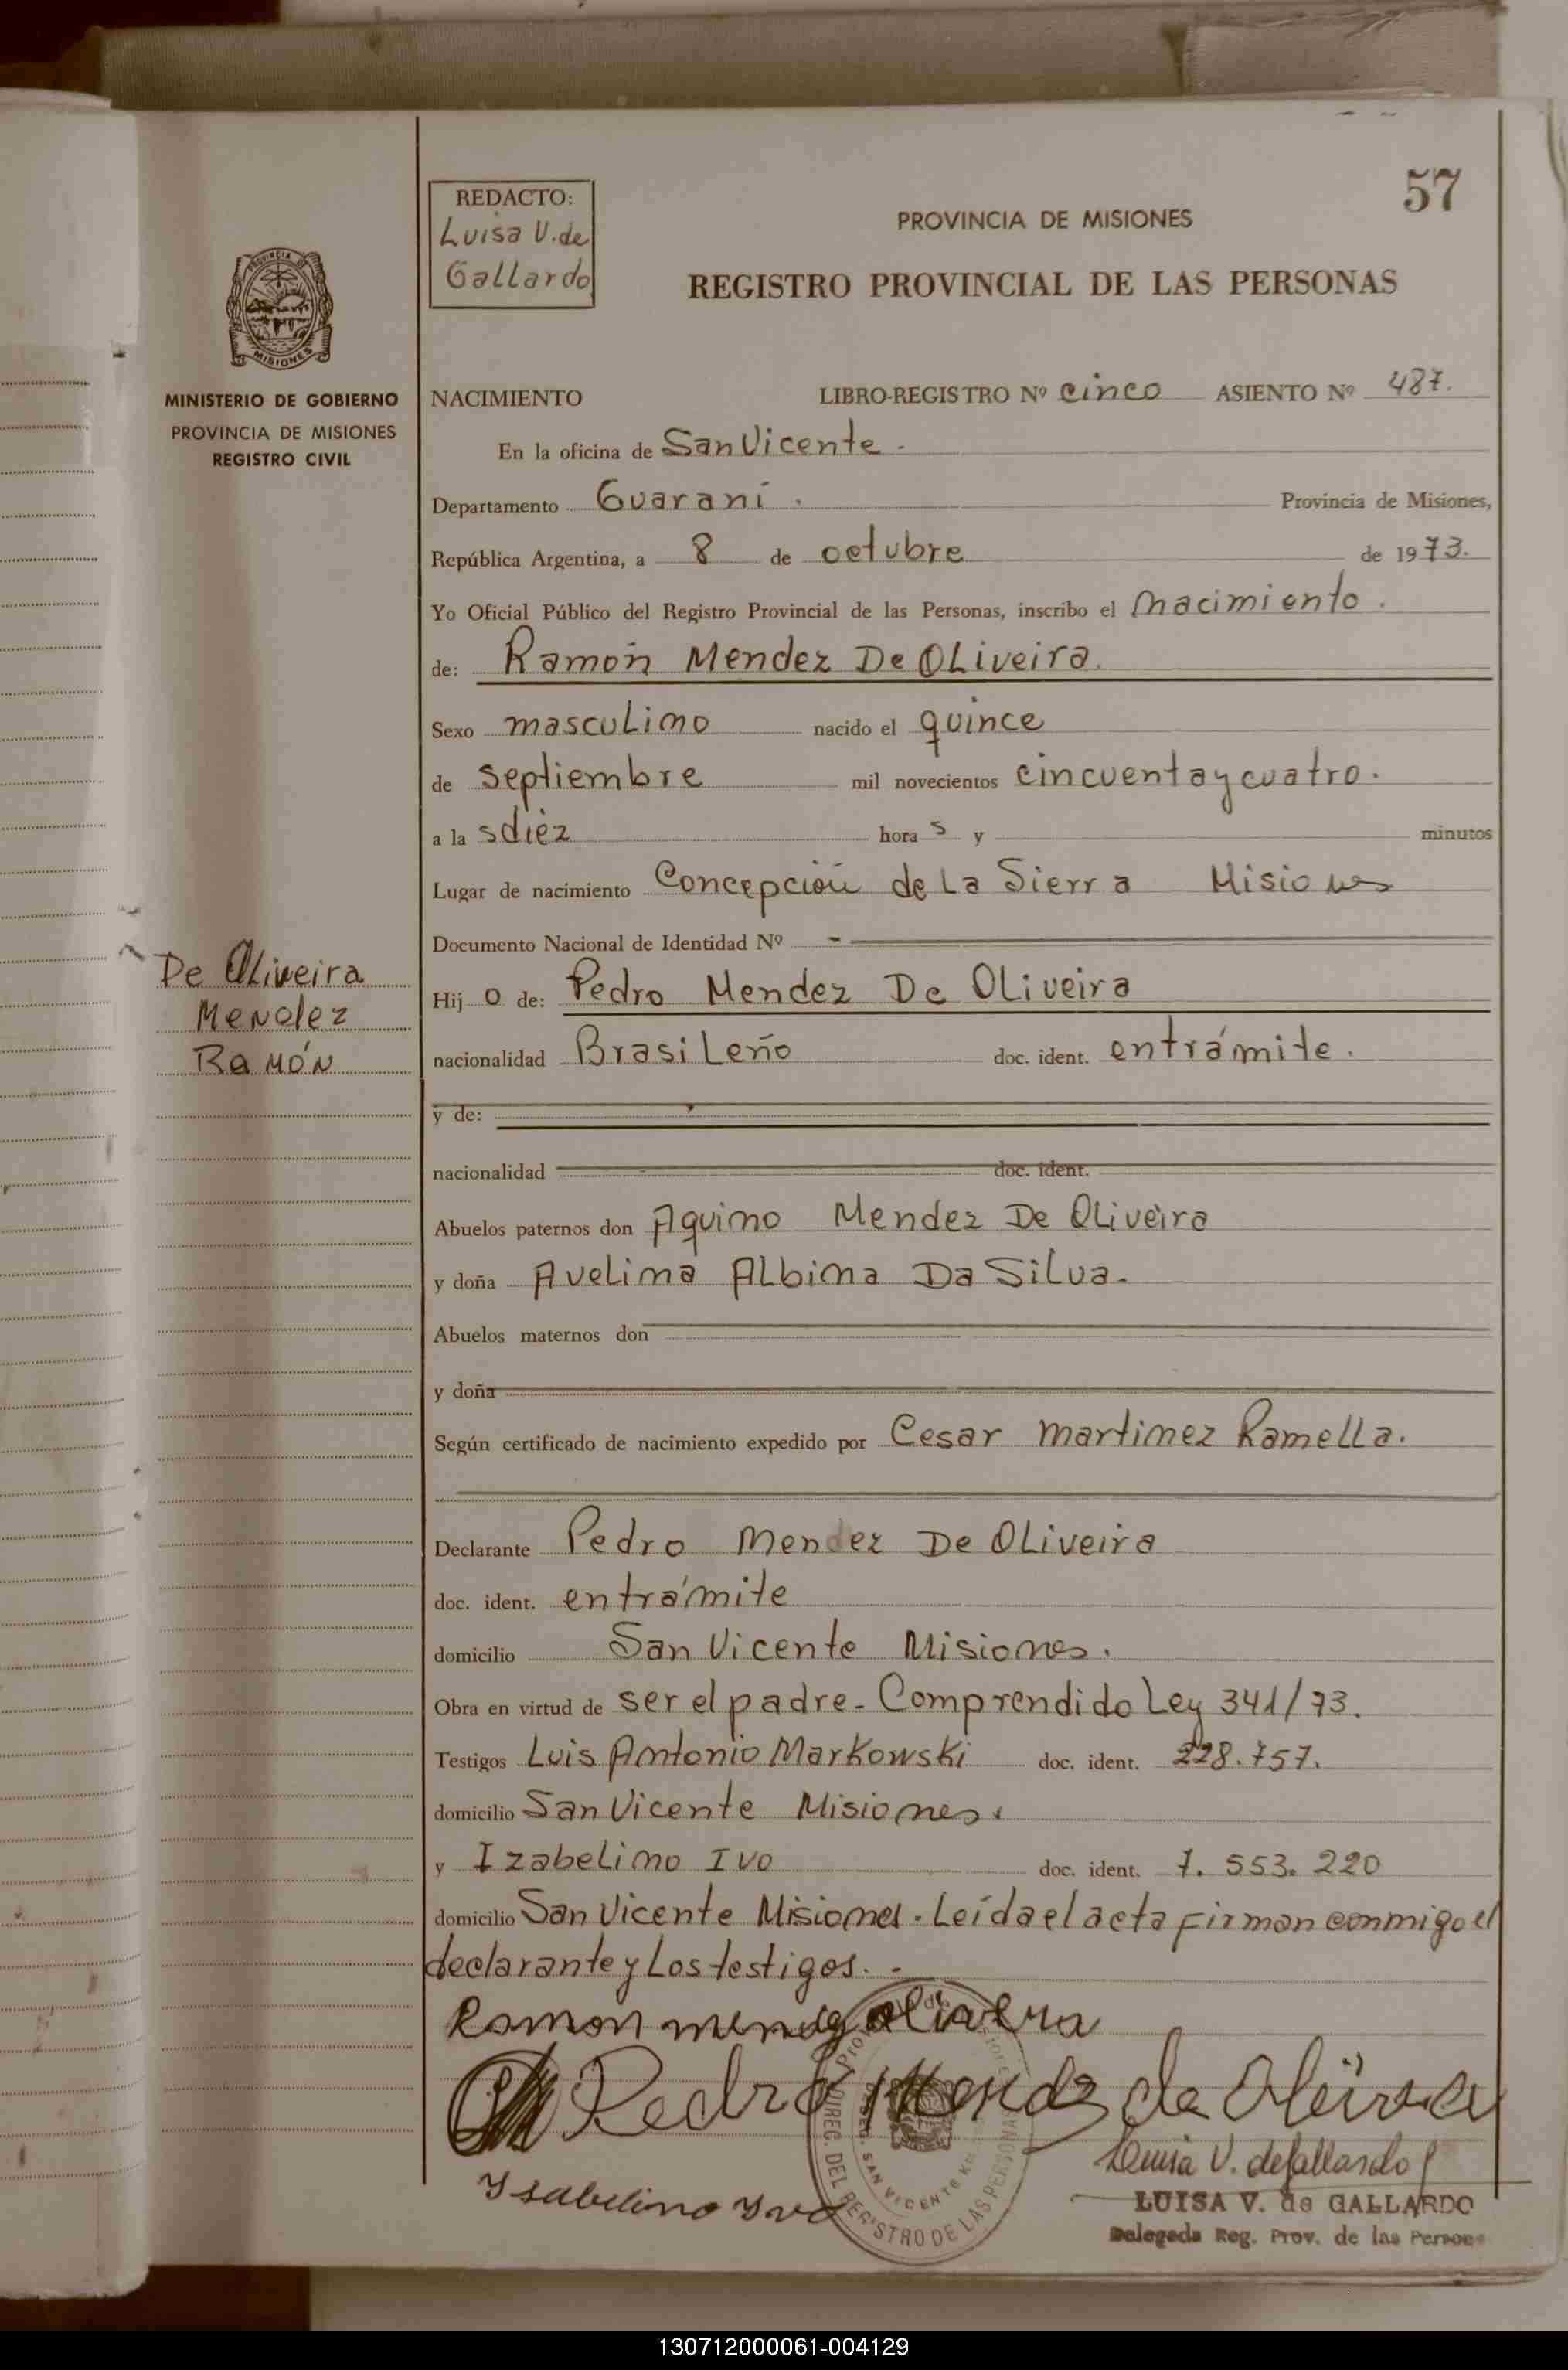 57
REDACTO:
Luisa V. de
Gallardo
PROVINCIA DE MISIONES
REGISTRO PROVINCIAL DE LAS PERSONAS
PROVINCIA DE
MISIONES
MINISTERIO DE GOBIERNO
PROVINCIA DE MISIONES
REGISTRO CIVIL
NACIMIENTO LIBRO-REGISTRO Nº cinco ASIENTO Nº 487.
En la oficina de San Vicente.
Departamento Guaraní. Provincia de Misiones,
República Argentina, a 8 de octubre de 1973.
Yo Oficial Público del Registro Provincial de las Personas, inscribo el nacimiento.
de: Ramón Mendez De Oliveira.
Sexo masculino nacido el quince
de septiembre mil novecientos cincuenta y cuatro.
a la s diez hora s y minutos
Lugar de nacimiento Concepción de la Sierra Misiones
Documento Nacional de Identidad Nº -
De Oliveira
Mendez
Ramón
Hij o de: Pedro Mendez De Oliveira
nacionalidad Brasileño doc. ident. en trámite.
y de:
nacionalidad doc. ident.
Abuelos paternos don Aquino Mendez De Oliveira
y doña Avelina Albina Da Silva.
Abuelos maternos don
y doña
Según certificado de nacimiento expedido por Cesar Martinez Ramella.
Declarante Pedro Mendez De Oliveira
doc. ident. en trámite
domicilio San Vicente Misiones.
Obra en virtud de ser el padre - Comprendido Ley 341/73.
Testigos Luis Antonio Markowski doc. ident. 228.757.
domicilio San Vicente Misiones.
y Izabelino Ivo doc. ident. 1.553.220
domicilio San Vicente Misiones. Leída el acta firman conmigo el
declarante y los testigos. -
Ramon mendez olivera
Pedro Mendz de Oliveira
Luisa V. de Gallardo
Ysabelino Yvo
LUISA V. de GALLARDO
Delegada Reg. Prov. de las Persona
DIREC. DEL REGISTRO DE LAS PERSONAS
SAN VICENTE
130712000061-004129